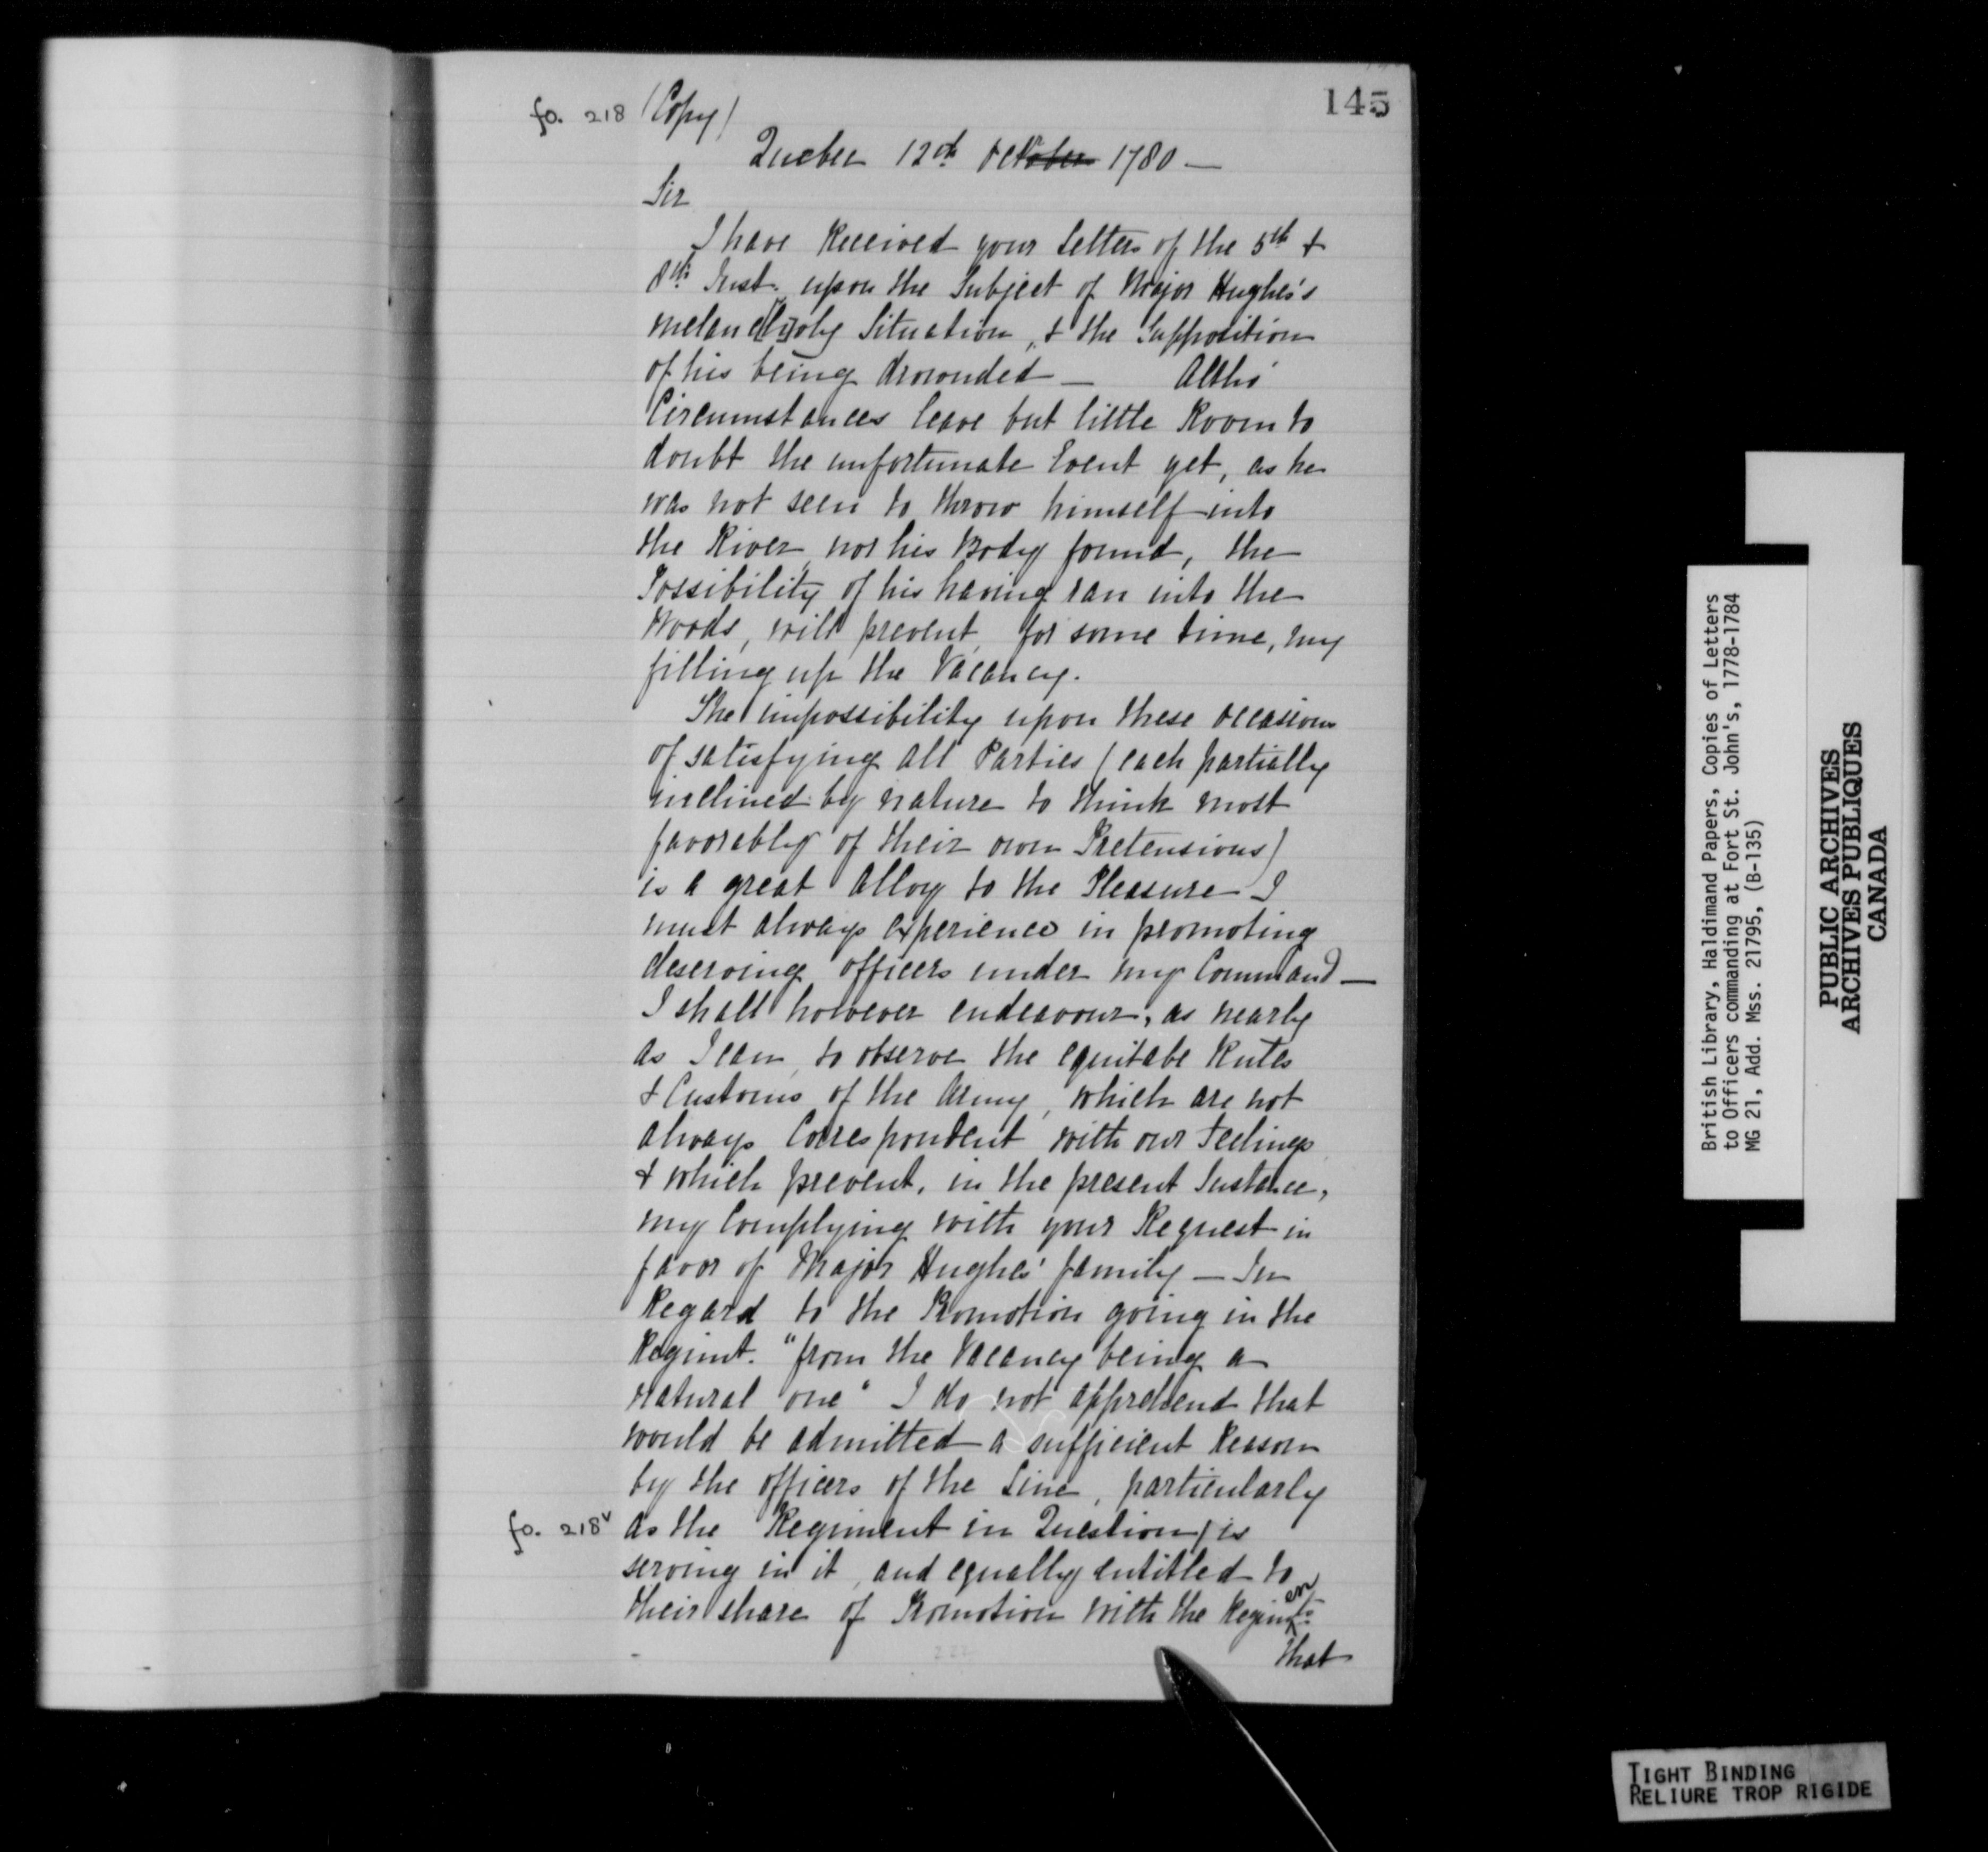 145
fo. 218 (Copy)
Quebec 12th October 1780 —
Sir
I have Received your Letters of the 5th &
8th Inst. upon the Subject of Major Hughes's
melanc[h]oly Situation, & the Supposition
of his being drownded — Altho'
Circumstances leave but little Room to
doubt the unfortunate Event yet, as he
was not seen to throw himself into
the River, nor his Body found, the
Possibility of his having ran into the
Woods, will prevent, for some time, my
filling up the Vacancy.
The impossibility upon these occasions
of satisfying all Parties (each partially
inclined by nature to think most
favorably of their own Pretensions)
is a great alloy to the Pleasure I
must always experience in promoting
deserving officers under my Command —
I shall however endeavour, as nearly
as I can, to observe the equitabe Rules
& Customs of the Army, which are not
always Correspondent with our Feelings
& which prevent, in the present Instance,
my Complying with your Request in
favor of Major Hughes' family — In
Regard to the Promotion going in the
Regimt. "from the Vacancy being a
natural one" I do not apprehend that
would be admitted a sufficient Reason
by the officers of the Line, particularly
fo. 218v as the Regiment in Question is
serving in it, and equally entitled to
their share of Promotion with the Regiments
that
British Library, Haldimand Papers, Copies of Letters
to Officers commanding at Fort St. John's, 1778-1784
MG 21, Add. Mss. 21795, (B-135)
PUBLIC ARCHIVES
ARCHIVES PUBLIQUES
CANADA
TIGHT BINDING
RELIURE TROP RIGIDE